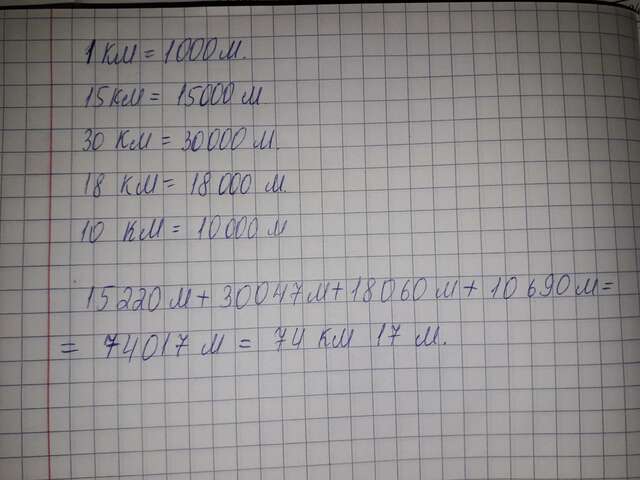 1 км = 1000 м.
15 км = 15000 м
30 км = 30000 м.
18 км = 18000 м.
10 км = 10000 м
15220 м + 30047 м + 18060 м + 10690 м =
= 74017 м = 74 км 17 м.